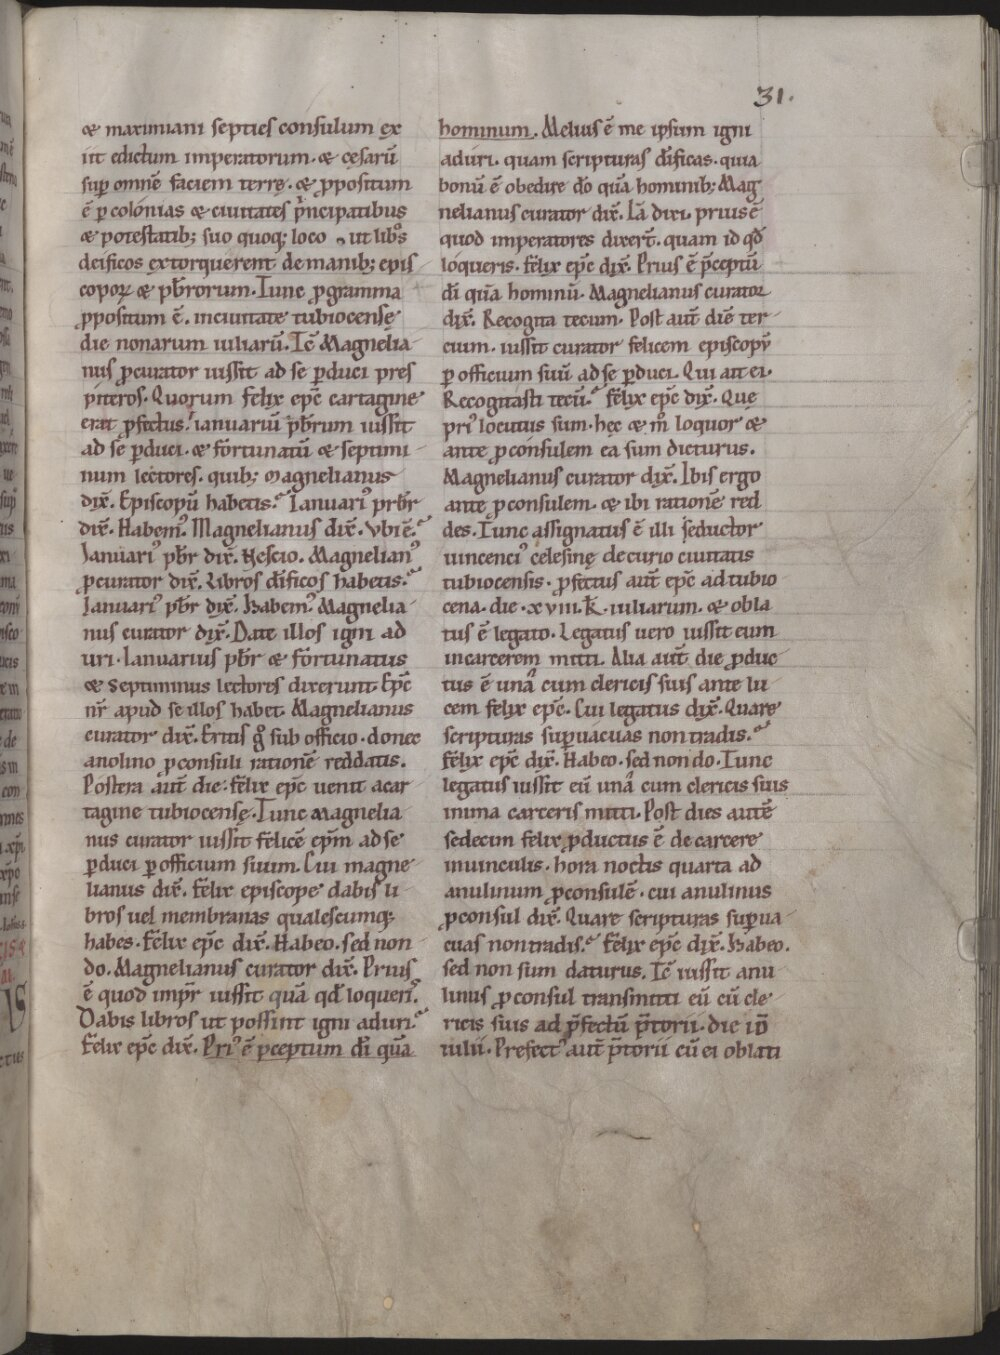 31.
& maximiani septies consulum ex
iit edictum imperatorum. & cęsarū
sup̱ omnē faciem terrę. & ꝓpositum
ē ꝑ colonias & ciuitates p̃ncipatibus
& potestatib; suo quoq; loco ut lib̃os
deificos extorquerent de manib; epis
copoꝝ & pb̃rorum. Tunc ꝓgramma
ꝓpositum ē. in ciuitate tubiocensę
die nonarum iuliarū. Tē Magnelia
nus ꝓcurator iussit ad se ꝑduci pres
piteros. Quorum felix ep̃c cartagine
erat ꝓfectus. ianuariū pb̃rum iussit
ad se ꝑduci. & fortunatū & septimi
num lectores. quib; magnelianus
dix̃. Episcopū habetis. Ianuariꝰ prb̃r
dix̃. Habemꝰ. Magnelianus dix̃. Vbi ē.
Januariꝰ pb̃r dix̃. Nescio. Magnelianꝰ
ꝓcurator dix̃. Libros d̃ificos habetis.
Januariꝰ pb̃r dix̃. Habemꝰ. Magnelia
nus curator dix̃. Date illos igni ad
uri. Ianuarius pb̃r & fortunatus
& Septiminus lectores dixerunt. Ep̃c
nr̃ apud se illos habet. Magnelianus
curator dix̃. Eritis g̊ sub officio. donec
anolino ꝓconsuli rationē reddatis.
Postera aūt die. felix ep̃c uenit a car
tagine tubiocensę. Tunc magnelia
nus curator iussit felicē ep̃m ad se
ꝑduci ꝑ officium suum. Cui magne
lianus dix̃. felix episcope dabis li
bros uel membranas qualescumq;
habes. Felix ep̃c dix̃. Habeo. sed non
do. Magnelianus curator dix̃. Prius
ē quod imp̃r iussit quā qd̃ loquerꝭ.
Dabis libros ut possint igni aduri.
Felix ep̃c dix̃. Priꝰ ē p̃ceptum d̃i quā
hominum. Melius ē me ipsum igni
aduri. quam scripturas d̃ificas. quia
bonū ē obedire d̃o quā hominib; Mag
nelianus curator dix̃. Iā dixi. prius ē
quod imperatores dixer̃t. quam id qd̃
loqueris. felix ep̃c dix̃. Prius ē p̃ceptū
d̃i quā hominū. Magnelianus curator
dix̃. Recogita tecum. Post aūt diē ter
cium. iussit curator felicem episcopū
ꝑ officium suū ad se ꝑduci. Qui ait ei.
Recogitasti tecū. felix ep̃c dix̃. Que
priꝰ locutus sum. hęc & m̊ loquor &
ante ꝓconsulem ea sum dicturus.
Magnelianus curator dix̃. Ibis ergo
ante ꝓconsulem. & ibi rationē red
des. Tunc assignatus ē illi seductor
uincenciꝰ celesinę decurio ciuitatis
tubiocensis. ꝓfectus aūt ep̃c ad tubio
cena. die. xviii. k̃. iuliarum. & obla
tus ē legato. Legatus uero iussit eum
in carcerem mitti. Alia aūt die ꝓduc
tus ē una cum clericis suis ante lu
cem felix ep̃c. Cui legatus dix̃. Quare
scripturas suꝑuacuas non tradis.
felix ep̃c dix̃. Habeo. sed non do. Tunc
legatus iussit eū una cum clericis suis
in ima carceris mitti. Post dies autē
sedecim felix ꝓductus ē de carcere
in uinculis. hora noctis quarta ad
anulinum ꝓconsulē. cui anulinus
ꝓconsul dix̃. Quare scripturas suꝑua
cuas non tradis. Felix ep̃c dix̃. Habeo.
sed non sum daturus. Tē iussit anu
linus ꝓconsul transmitti eū cū cle
ricis suis ad p̃fectū p̃torii. die id̃
iulii. Prefectꝰ aūt p̃torii cū ei oblati